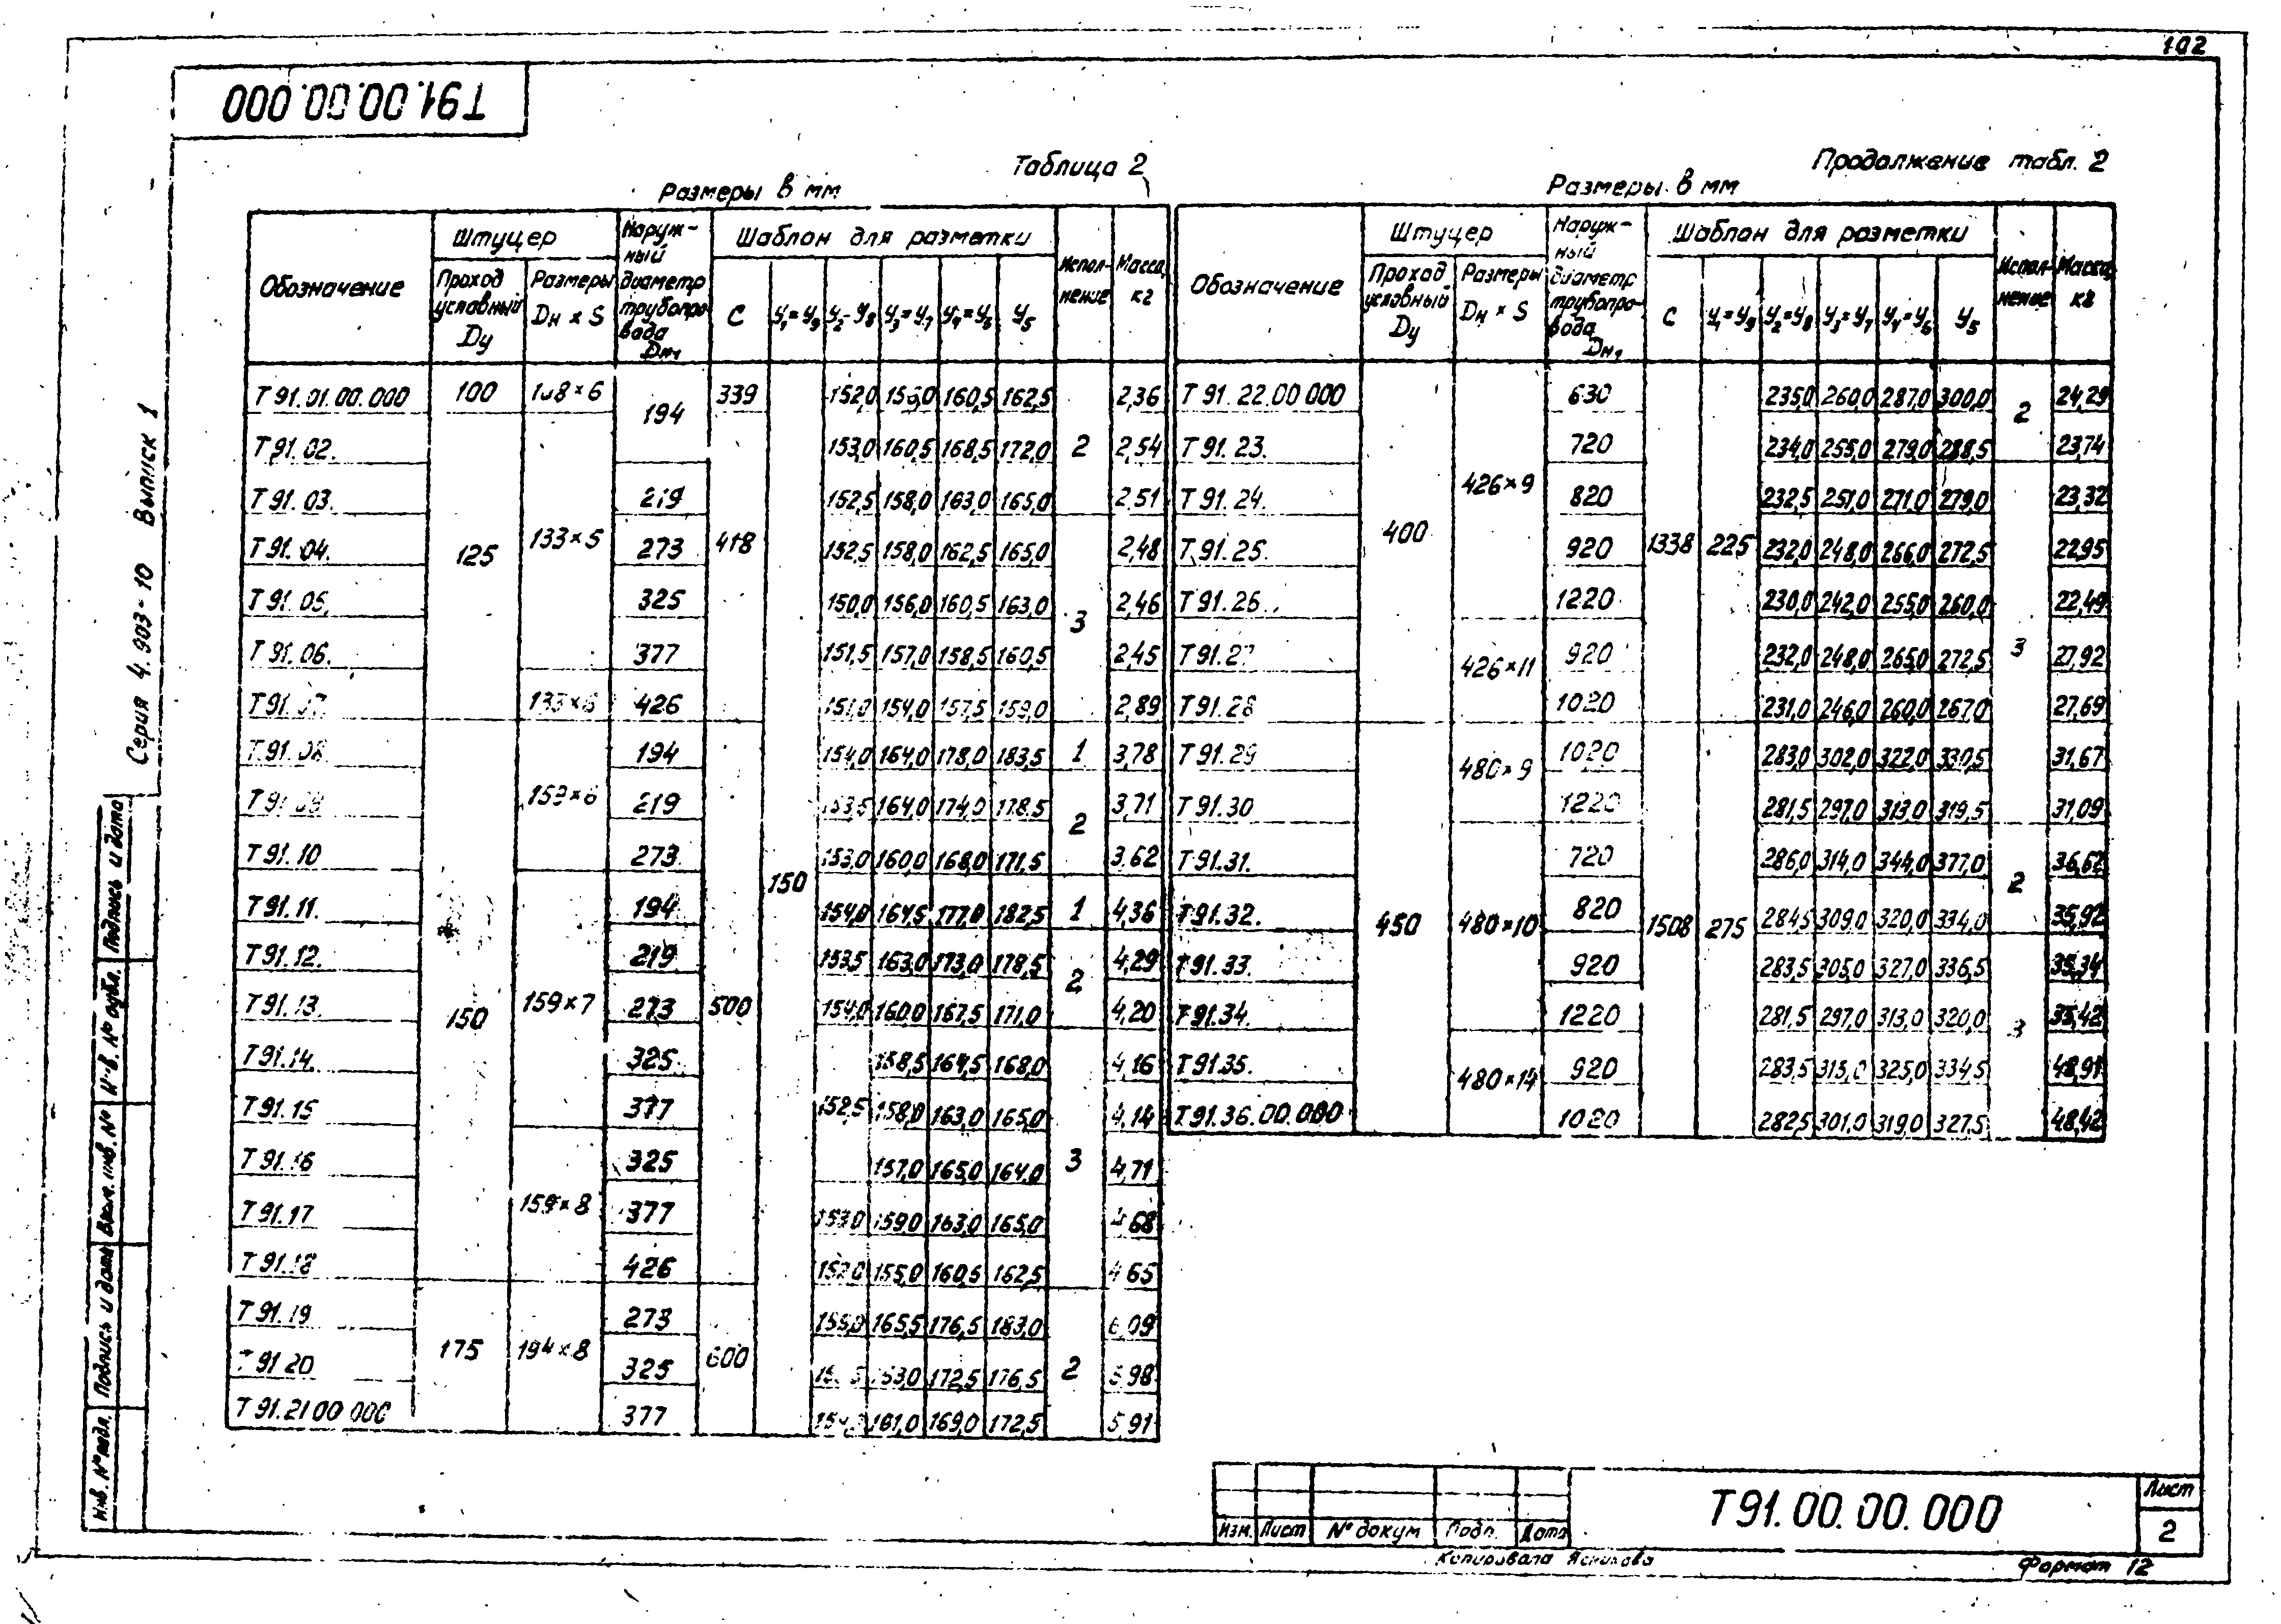 102
Т91.00.00.000
Серия 4.903-10 Выпуск 1
Таблица 2
Размеры в мм
Обозначение | Штуцер | Наружный диаметр трубопровода Dн₁ | Шаблон для разметки | Исполнение | Масса, кг
Проход условный Dу | Размеры Dн × S | C | У₁=У₉ | У₂=У₈ | У₃=У₇ | У₄=У₆ | У₅
Т91.01.00.000 100 108×6 194 339 152,0 156,0 160,5 162,5 2,36
Т91.02. 153,0 160,5 168,5 172,0 2 2,54
Т91.03. 219 152,5 158,0 163,0 165,0 2,51
Т91.04. 125 133×5 273 418 152,5 158,0 162,5 165,0 2,48
Т91.05. 325 150,0 156,0 160,5 163,0 3 2,46
Т91.06. 377 151,5 157,0 158,5 160,5 2,45
Т91.07 133×6 426 151,0 154,0 157,5 159,0 2,89
Т91.08 194 154,0 164,0 178,0 183,5 1 3,78
Т91.09 159×6 219 153,5 164,0 174,0 178,5 2 3,71
Т91.10 273 150 153,0 160,0 168,0 171,5 3,62
Т91.11. 194 154,0 164,5 177,0 182,5 1 4,36
Т91.12. 219 153,5 163,0 173,0 178,5 2 4,29
Т91.13. 150 159×7 273 500 154,0 160,0 167,5 171,0 4,20
Т91.14. 325 158,5 164,5 168,0 4,16
Т91.15 377 152,5 158,0 163,0 165,0 4,14
Т91.16 325 157,0 165,0 164,0 3 4,71
Т91.17 159×8 377 153,0 159,0 163,0 165,0 4,68
Т91.18 426 152,0 155,0 160,5 162,5 4,65
Т91.19 273 165,5 176,5 183,0 6,09
Т91.20 175 194×8 325 600 163,0 172,5 176,5 2 5,98
Т91.21.00.000 377 161,0 169,0 172,5 5,91
Продолжение табл. 2
Размеры в мм
Обозначение | Штуцер | Наружный диаметр трубопровода Dн₁ | Шаблон для разметки | Исполнение | Масса, кг
Проход условный Dу | Размеры Dн × S | C | У₁=У₉ | У₂=У₈ | У₃=У₇ | У₄=У₆ | У₅
Т91.22.00.000 630 235,0 260,0 287,0 300,0 2 24,29
Т91.23. 720 234,0 255,0 279,0 288,5 23,74
Т91.24. 426×9 820 232,5 251,0 271,0 279,0 23,32
Т91.25. 400 920 1338 225 232,0 248,0 266,0 272,5 22,95
Т91.26. 1220 230,0 242,0 255,0 260,0 22,49
Т91.27 426×11 920 232,0 248,0 265,0 272,5 3 27,92
Т91.28 1020 231,0 246,0 260,0 267,0 27,69
Т91.29 480×9 1020 283,0 302,0 322,0 330,5 31,67
Т91.30 1220 281,5 297,0 313,0 319,5 31,09
Т91.31. 720 286,0 314,0 344,0 377,0 2 36,62
Т91.32. 450 480×10 820 1508 275 284,5 309,0 320,0 334,0 35,92
Т91.33. 920 283,5 305,0 327,0 336,5 35,34
Т91.34. 1220 281,5 297,0 313,0 320,0 3 35,42
Т91.35. 480×14 920 283,5 315,0 325,0 334,5 48,91
Т91.36.00.000 1020 282,5 301,0 319,0 327,5 48,42
Инв. № подл. Подпись и дата Взам. инв. № Инв. № дубл. Подпись и дата
Изм. Лист № докум Подп. Дата
Т91.00.00.000
Лист
2
Копировала
Формат 12